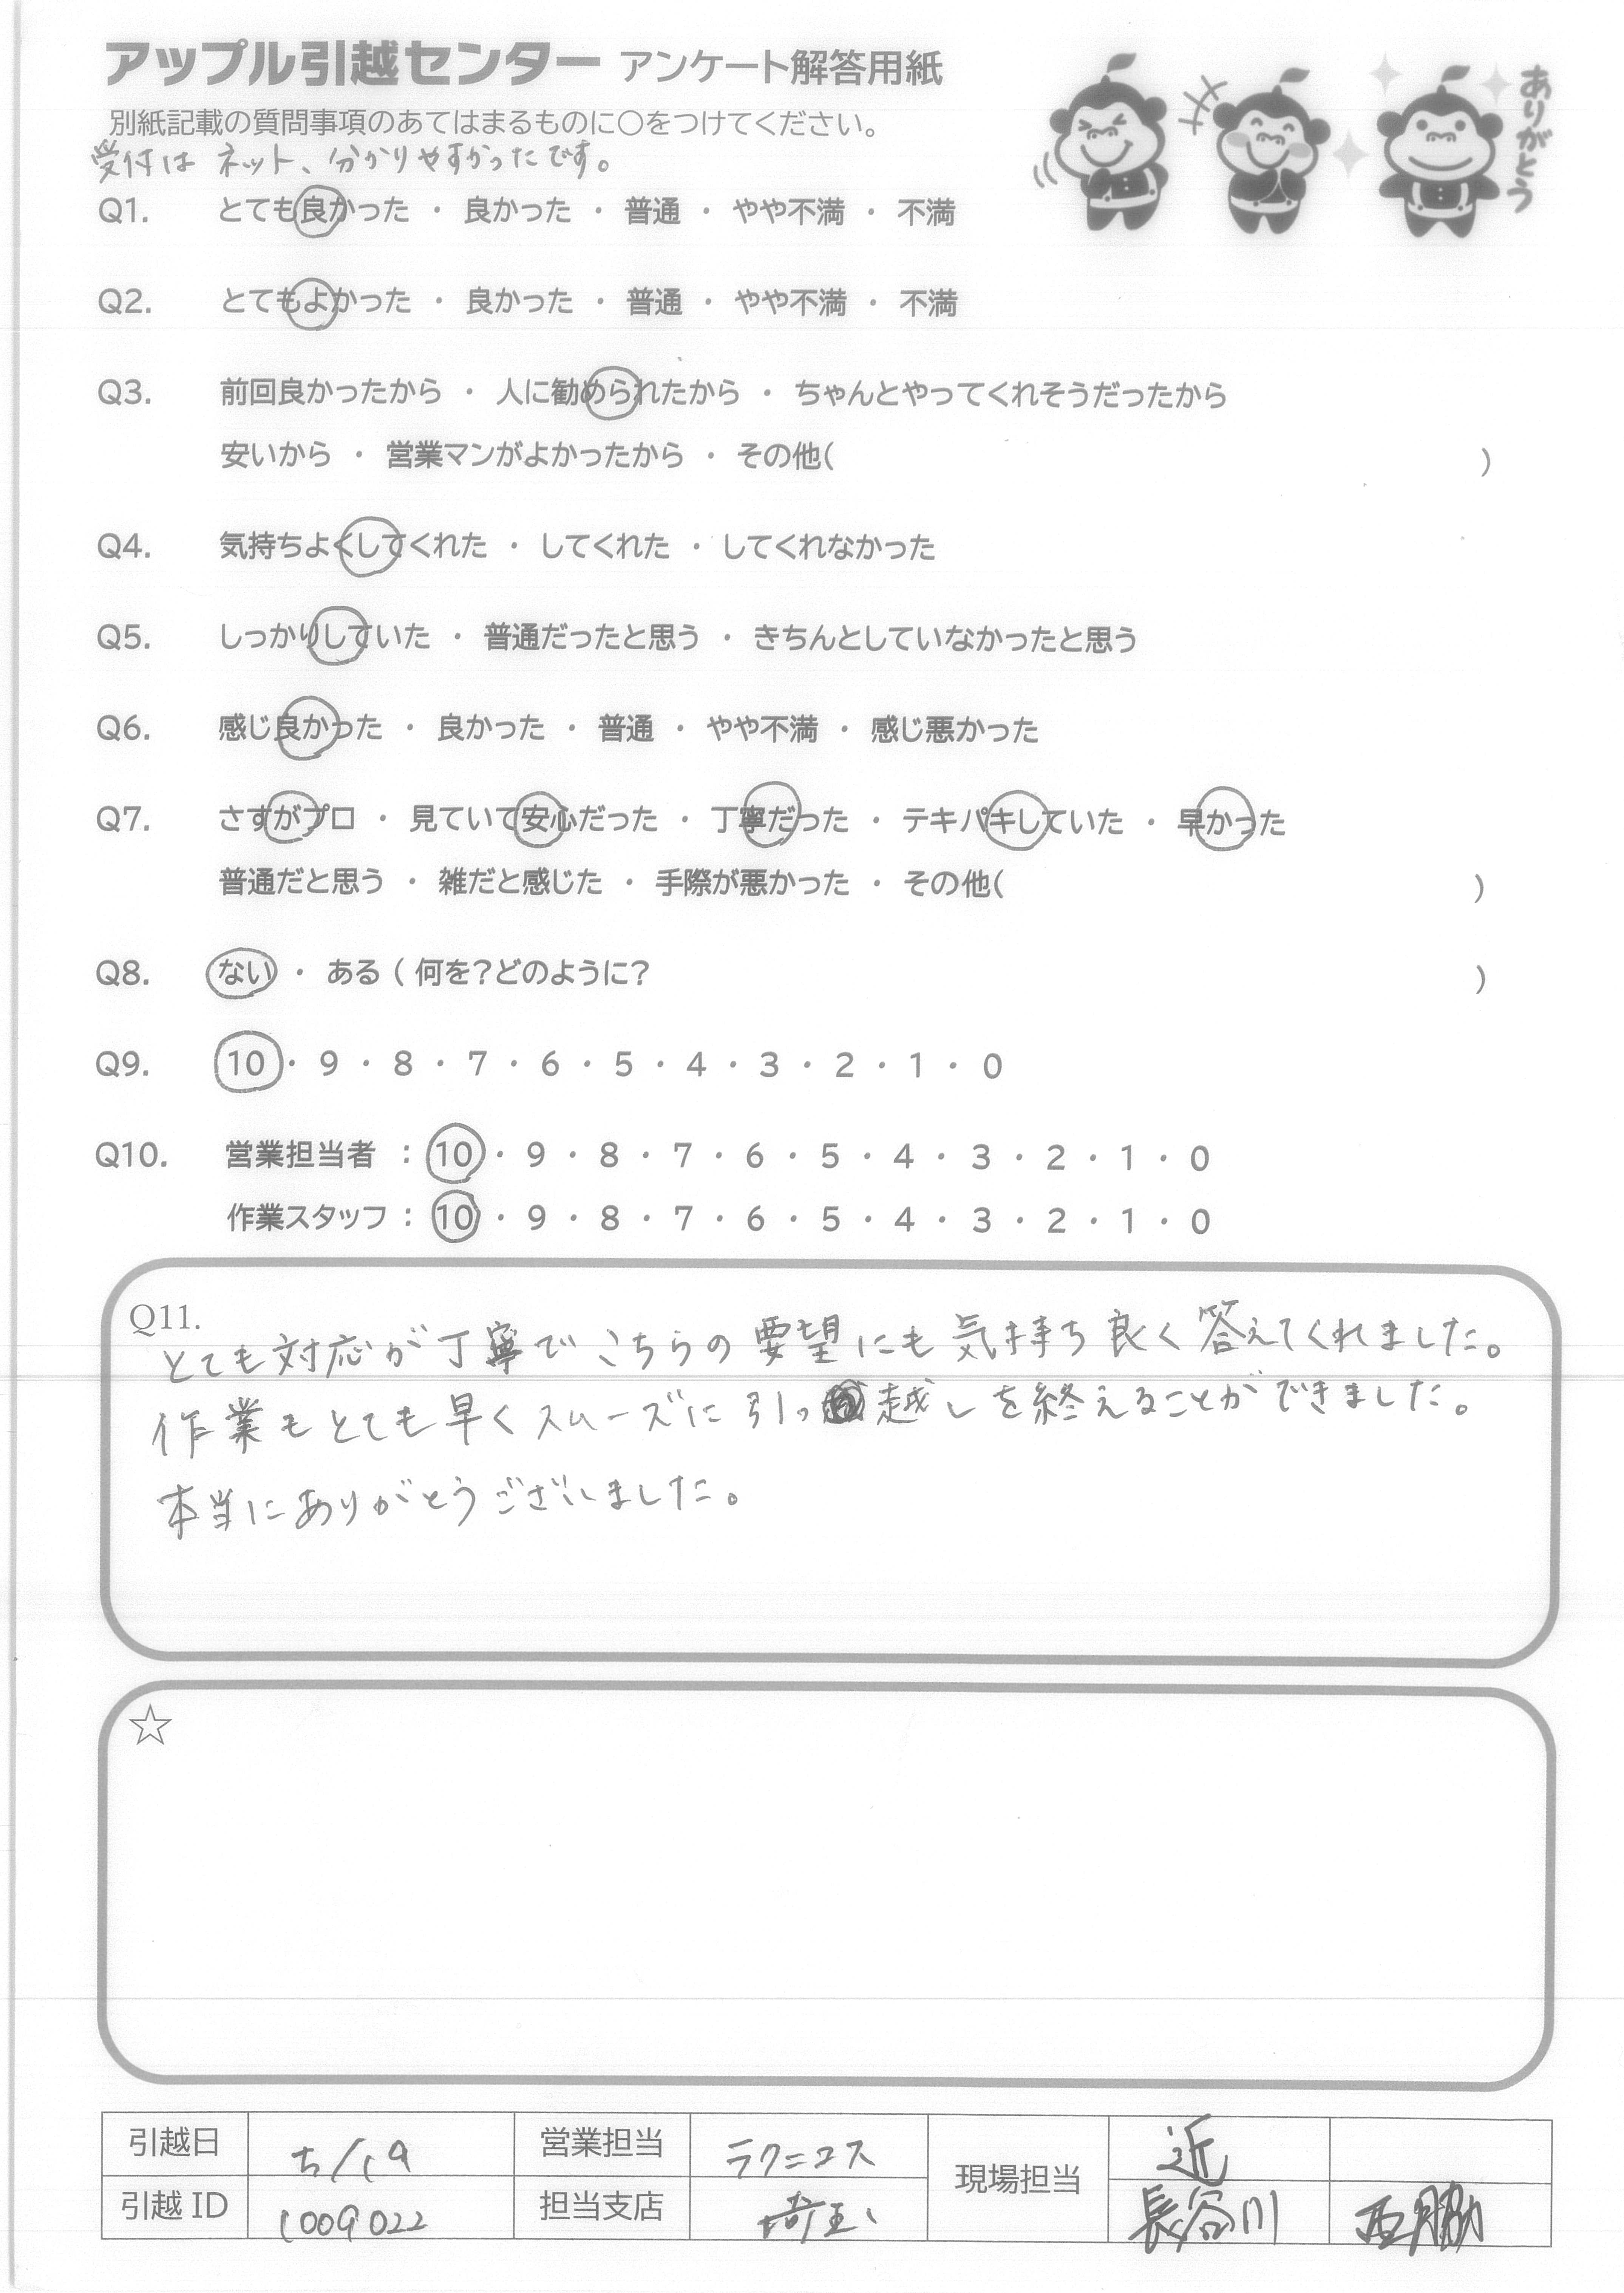 アップル引越センター アンケート解答用紙
ありがとう
別紙記載の質問事項のあてはまるものに○をつけてください。
受付は ネット、分かりやすかったです。
Q1. とても良かった ・ 良かった ・ 普通 ・ やや不満 ・ 不満
Q2. とてもよかった ・ 良かった ・ 普通 ・ やや不満 ・ 不満
Q3. 前回良かったから ・ 人に勧められたから ・ ちゃんとやってくれそうだったから
安いから ・ 営業マンがよかったから ・ その他( )
Q4. 気持ちよくしてくれた ・ してくれた ・ してくれなかった
Q5. しっかりしていた ・ 普通だったと思う ・ きちんとしていなかったと思う
Q6. 感じ良かった ・ 良かった ・ 普通 ・ やや不満 ・ 感じ悪かった
Q7. さすがプロ ・ 見ていて安心だった ・ 丁寧だった ・ テキパキしていた ・ 早かった
普通だと思う ・ 雑だと感じた ・ 手際が悪かった ・ その他( )
Q8. ない ・ ある ( 何を?どのように? )
Q9. 10 ・ 9 ・ 8 ・ 7 ・ 6 ・ 5 ・ 4 ・ 3 ・ 2 ・ 1 ・ 0
Q10. 営業担当者 : 10 ・ 9 ・ 8 ・ 7 ・ 6 ・ 5 ・ 4 ・ 3 ・ 2 ・ 1 ・ 0
作業スタッフ : 10 ・ 9 ・ 8 ・ 7 ・ 6 ・ 5 ・ 4 ・ 3 ・ 2 ・ 1 ・ 0
Q11.
とても対応が丁寧でこちらの要望にも気持ち良く答えてくれました。
作業もとても早くスムーズに引っ越しを終えることができました。
本当にありがとうございました。
☆
引越日 5/19 営業担当 ラクニコス 現場担当 近
引越 ID 1009022 担当支店 埼玉 長谷川 西脇